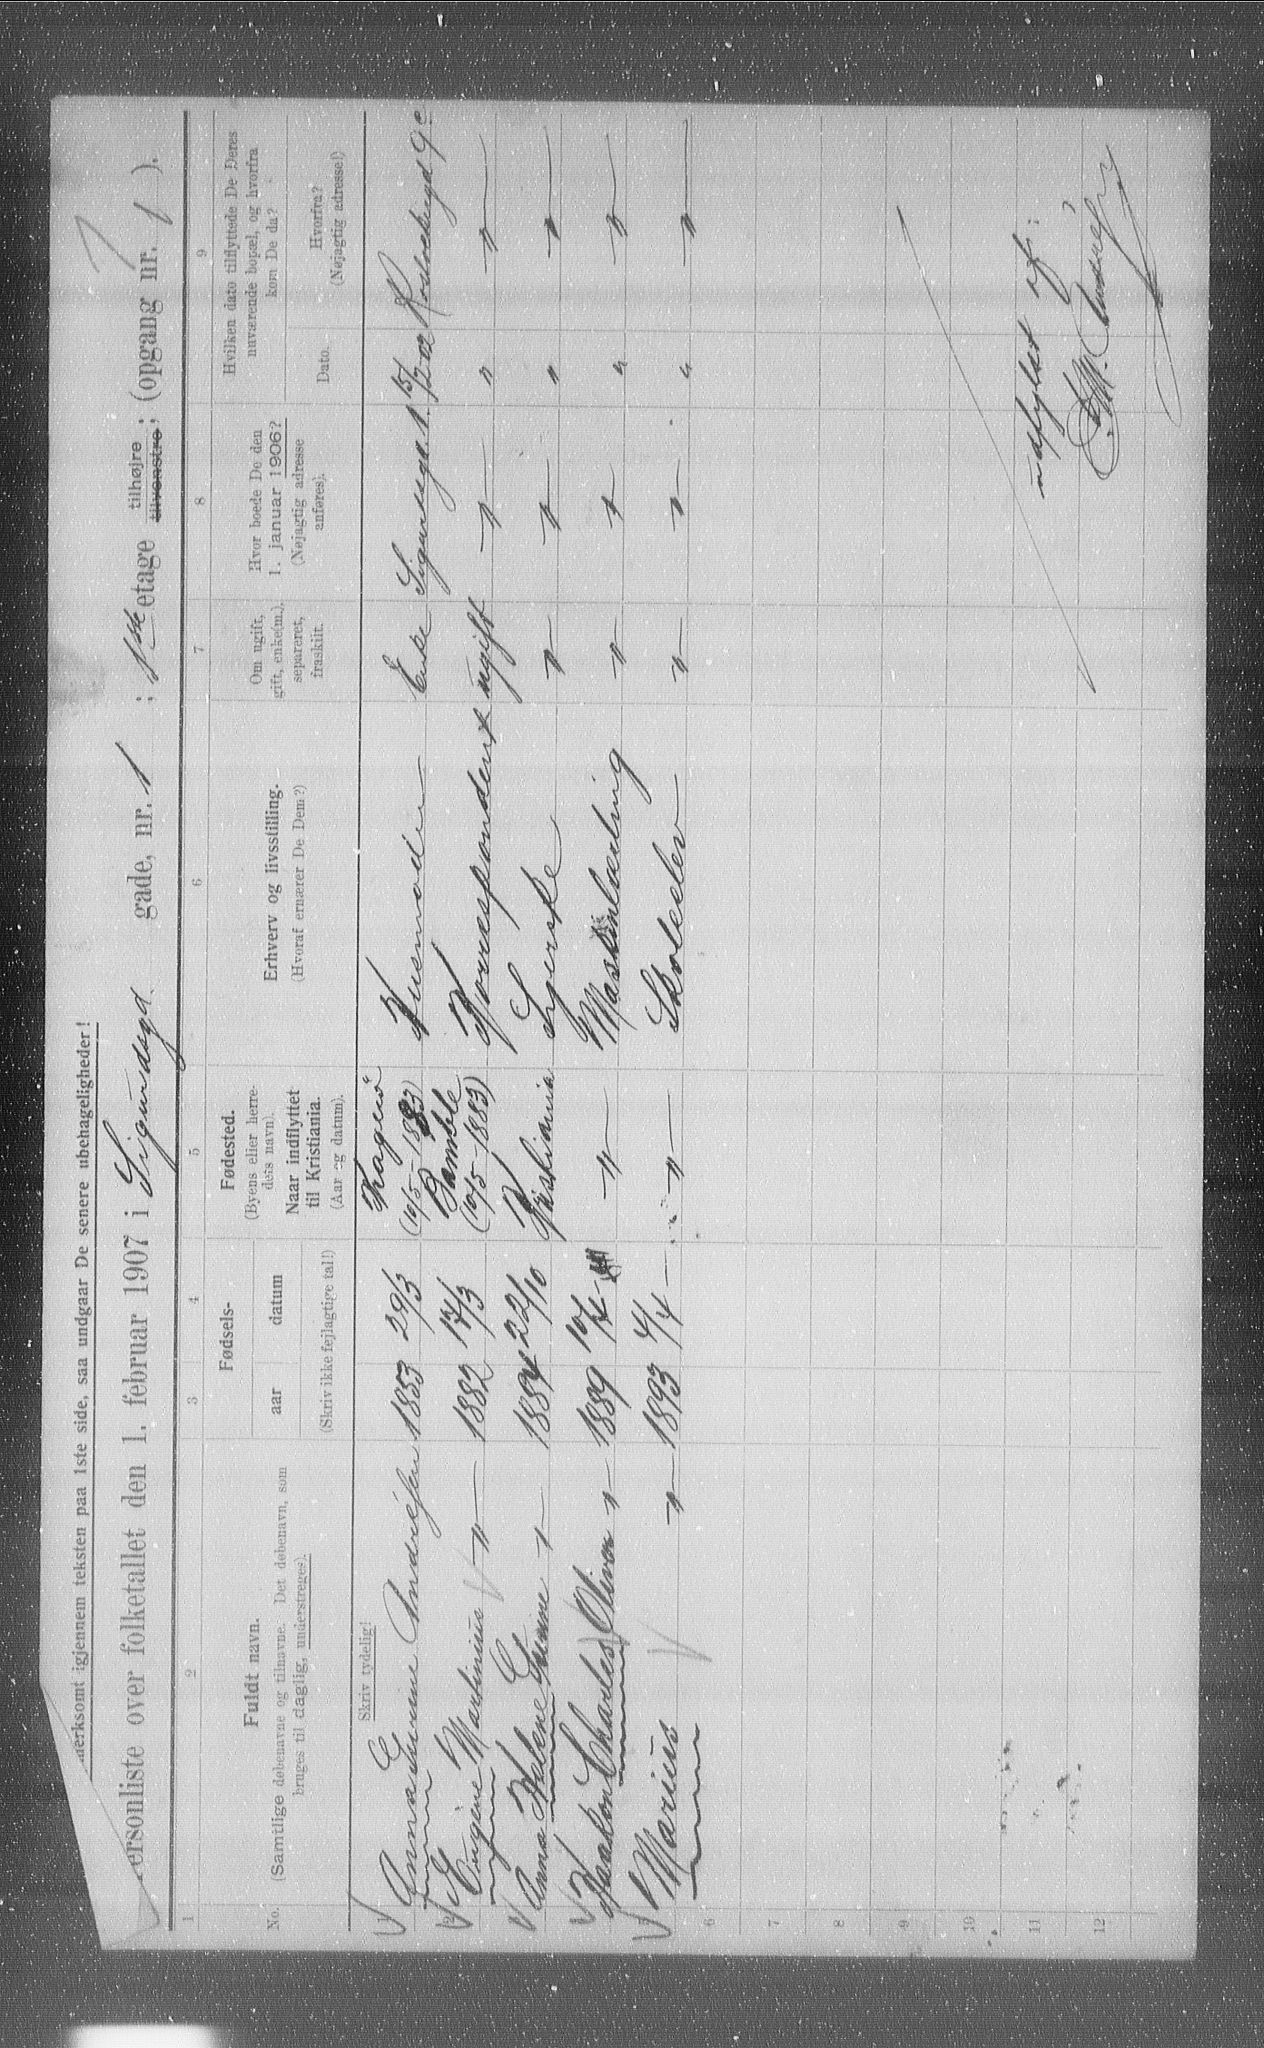 merksomt igjennem teksten paa 1ste side, saa undgaar De senere ubehageligheder!
ersonliste over folketallet den 1. februar 1907 i Sigurdsgd. gade, nr. 1 ; 1ste etage tilhøjre tilvenstre; (opgang nr. 1 ).
1 2 3 4 5 6 7 8 9
No.
Fuldt navn.
(Samtlige døbenavne og tilnavne. Det døbenavn, som
bruges til daglig, understreges).
Fødsels-
aar datum
(Skriv ikke fejlagtige tal!)
Fødested.
(Byens eller herre-
dets navn).
Naar indflyttet
til Kristiania.
(Aar og datum).
Erhverv og livsstilling.
(Hvoraf ernærer De Dem?)
Om ugift,
gift, enke(m.),
separeret,
fraskilt.
Hvor boede De den
1. januar 1906?
(Nøjagtig adresse
anføres).
Hvilken dato tilflyttede De Deres
nuværende bopæl, og hvorfra
kom De da?
Dato.
Hvorfra?
(Nøjagtig adresse!)
Skriv tydelig!
1 Anna Gunne Andresen 1853 29/3 Kragerø (10/5-1883) Husmoder Enke Sigurdsgd. 1. 15/2 02
2 Eugene Martinius -"- 1882 17/3 Bamble (10/5-1883) Korrespondent ugift -"- " -"-
Anna Helene Gunne -"- 1884 22/10 Kristiania Syerske -"- -"- " -"-
Haakon Charles Oliver -"- 1889 10/4 -"- Maskinlærling -"- -"- " -"-
5 Marius -"- 1893 4/4 -"- Skoleelev -"- -"- " -"-
6
7
8
9
10
11
12
udfyldt af: